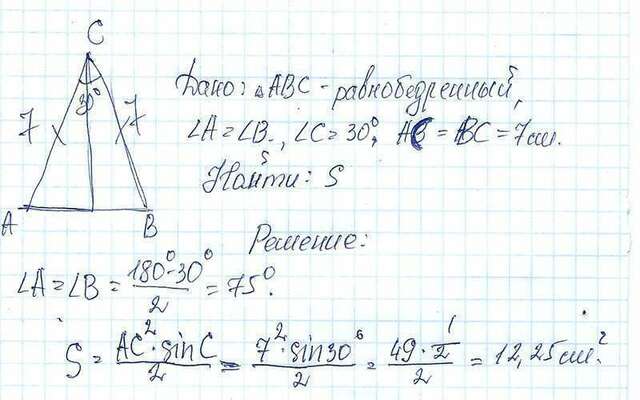 C
30°
7 7
A B
Дано: △ABC - равнобедренный,
∠A = ∠B, ∠C = 30°, AC = BC = 7 см.
Найти: S
Решение:
∠A = ∠B = (180° - 30°)/2 = 75°.
S = (AC² · sin C)/2 = (7² · sin 30°)/2 = (49 · 1/2)/2 = 12,25 см².